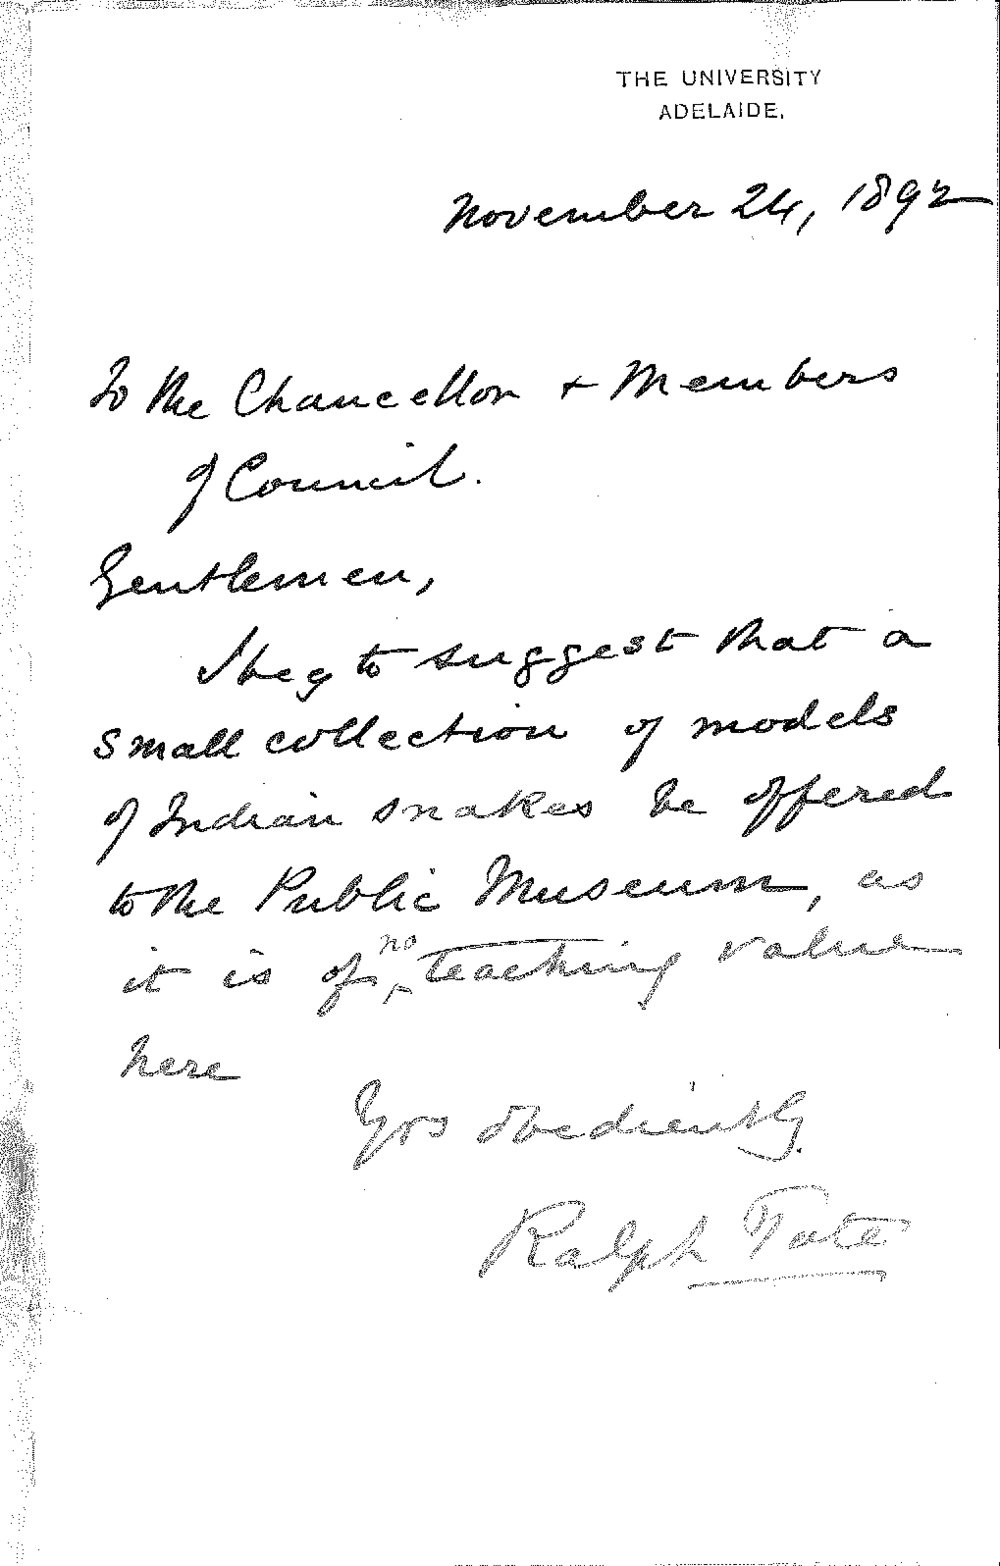 THE UNIVERSITY
ADELAIDE.
November 24, 1892
To the Chancellor + Members
of Council.
Gentlemen,
I beg to suggest that a
small collection of models
of Indian snakes be offered
to the Public Museum, as
it is of no teaching value
here
Yrs obediently
Ralph Tate